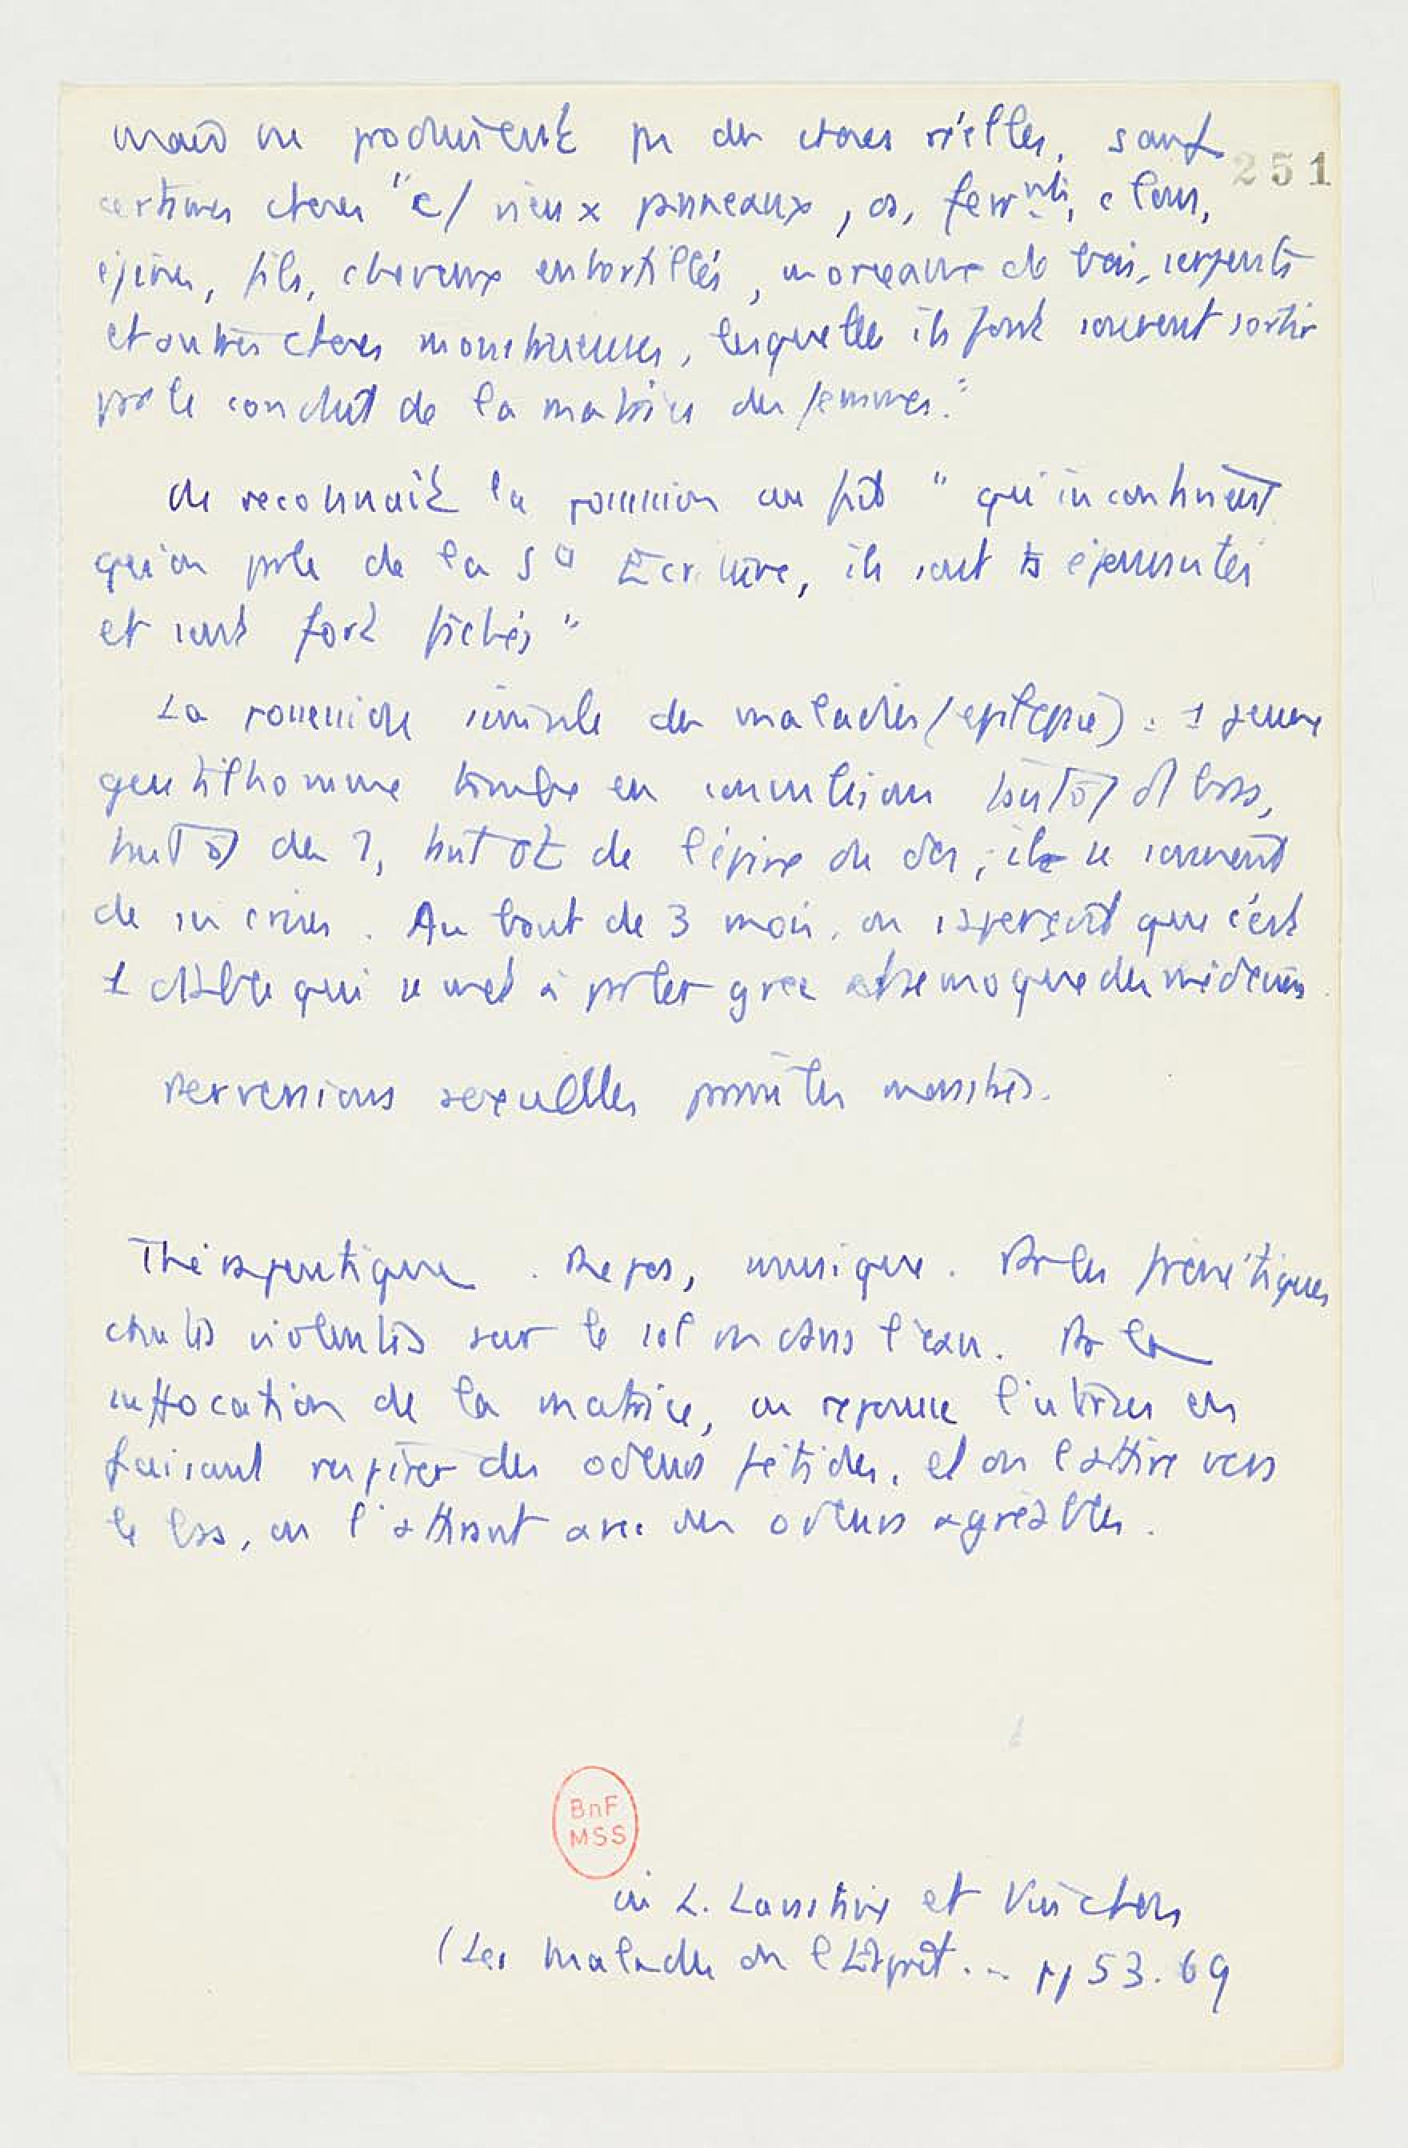 mais ne produisent pas des choses réelles, sauf
251
certaines choses "c/ vieux panneaux, os, ferrmts, clous,
épines, fils, cheveux entortillés, morceaux de bois, serpents
et autres choses monstrueuses, lesquelles ils font souvent sortir
par le conduit de la matrice des femmes."
On reconnaît la possession au fait "qu'incontinent
qu'on parle de la Ste Ecriture, ils sont ts épouvantés
et sont fort fachés"
La possession simule des maladies (epilepsie) : 1 jeune
gentilhomme tombe en convulsion tantôt d bras,
tantôt des 2, tantôt de l'épine du dos ; il se souvient
de ses crises. Au bout de 3 mois, on s'aperçoit que c'est
1 diable qui se met à parler grec et se moque des médecins.
Perversions sexuelles parmi les
Thérapeutique. Repos, musique. Pr les frénétiques
chutes violentes sur le sol ou dans l'eau. Pr la
suffocation de la matrice, on repousse l'utérus en
faisant respirer des odeurs fétides, et on l'attire vers
le bas, en l'attirant avec des odeurs agréables.
BnF
MSS
in L. et Vinchon
(Les maladies de l'Esprit... pp 53.69